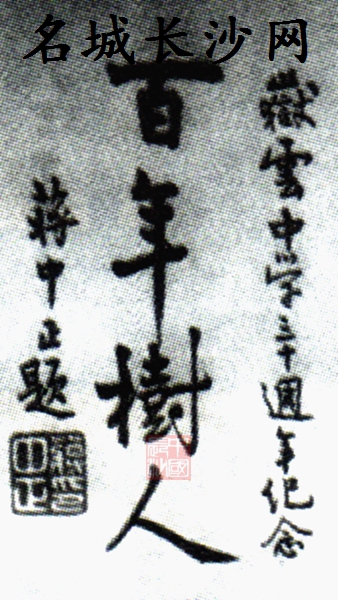 名城长沙网
嶽雲中学三十週年紀念
百年樹人
蔣中正題